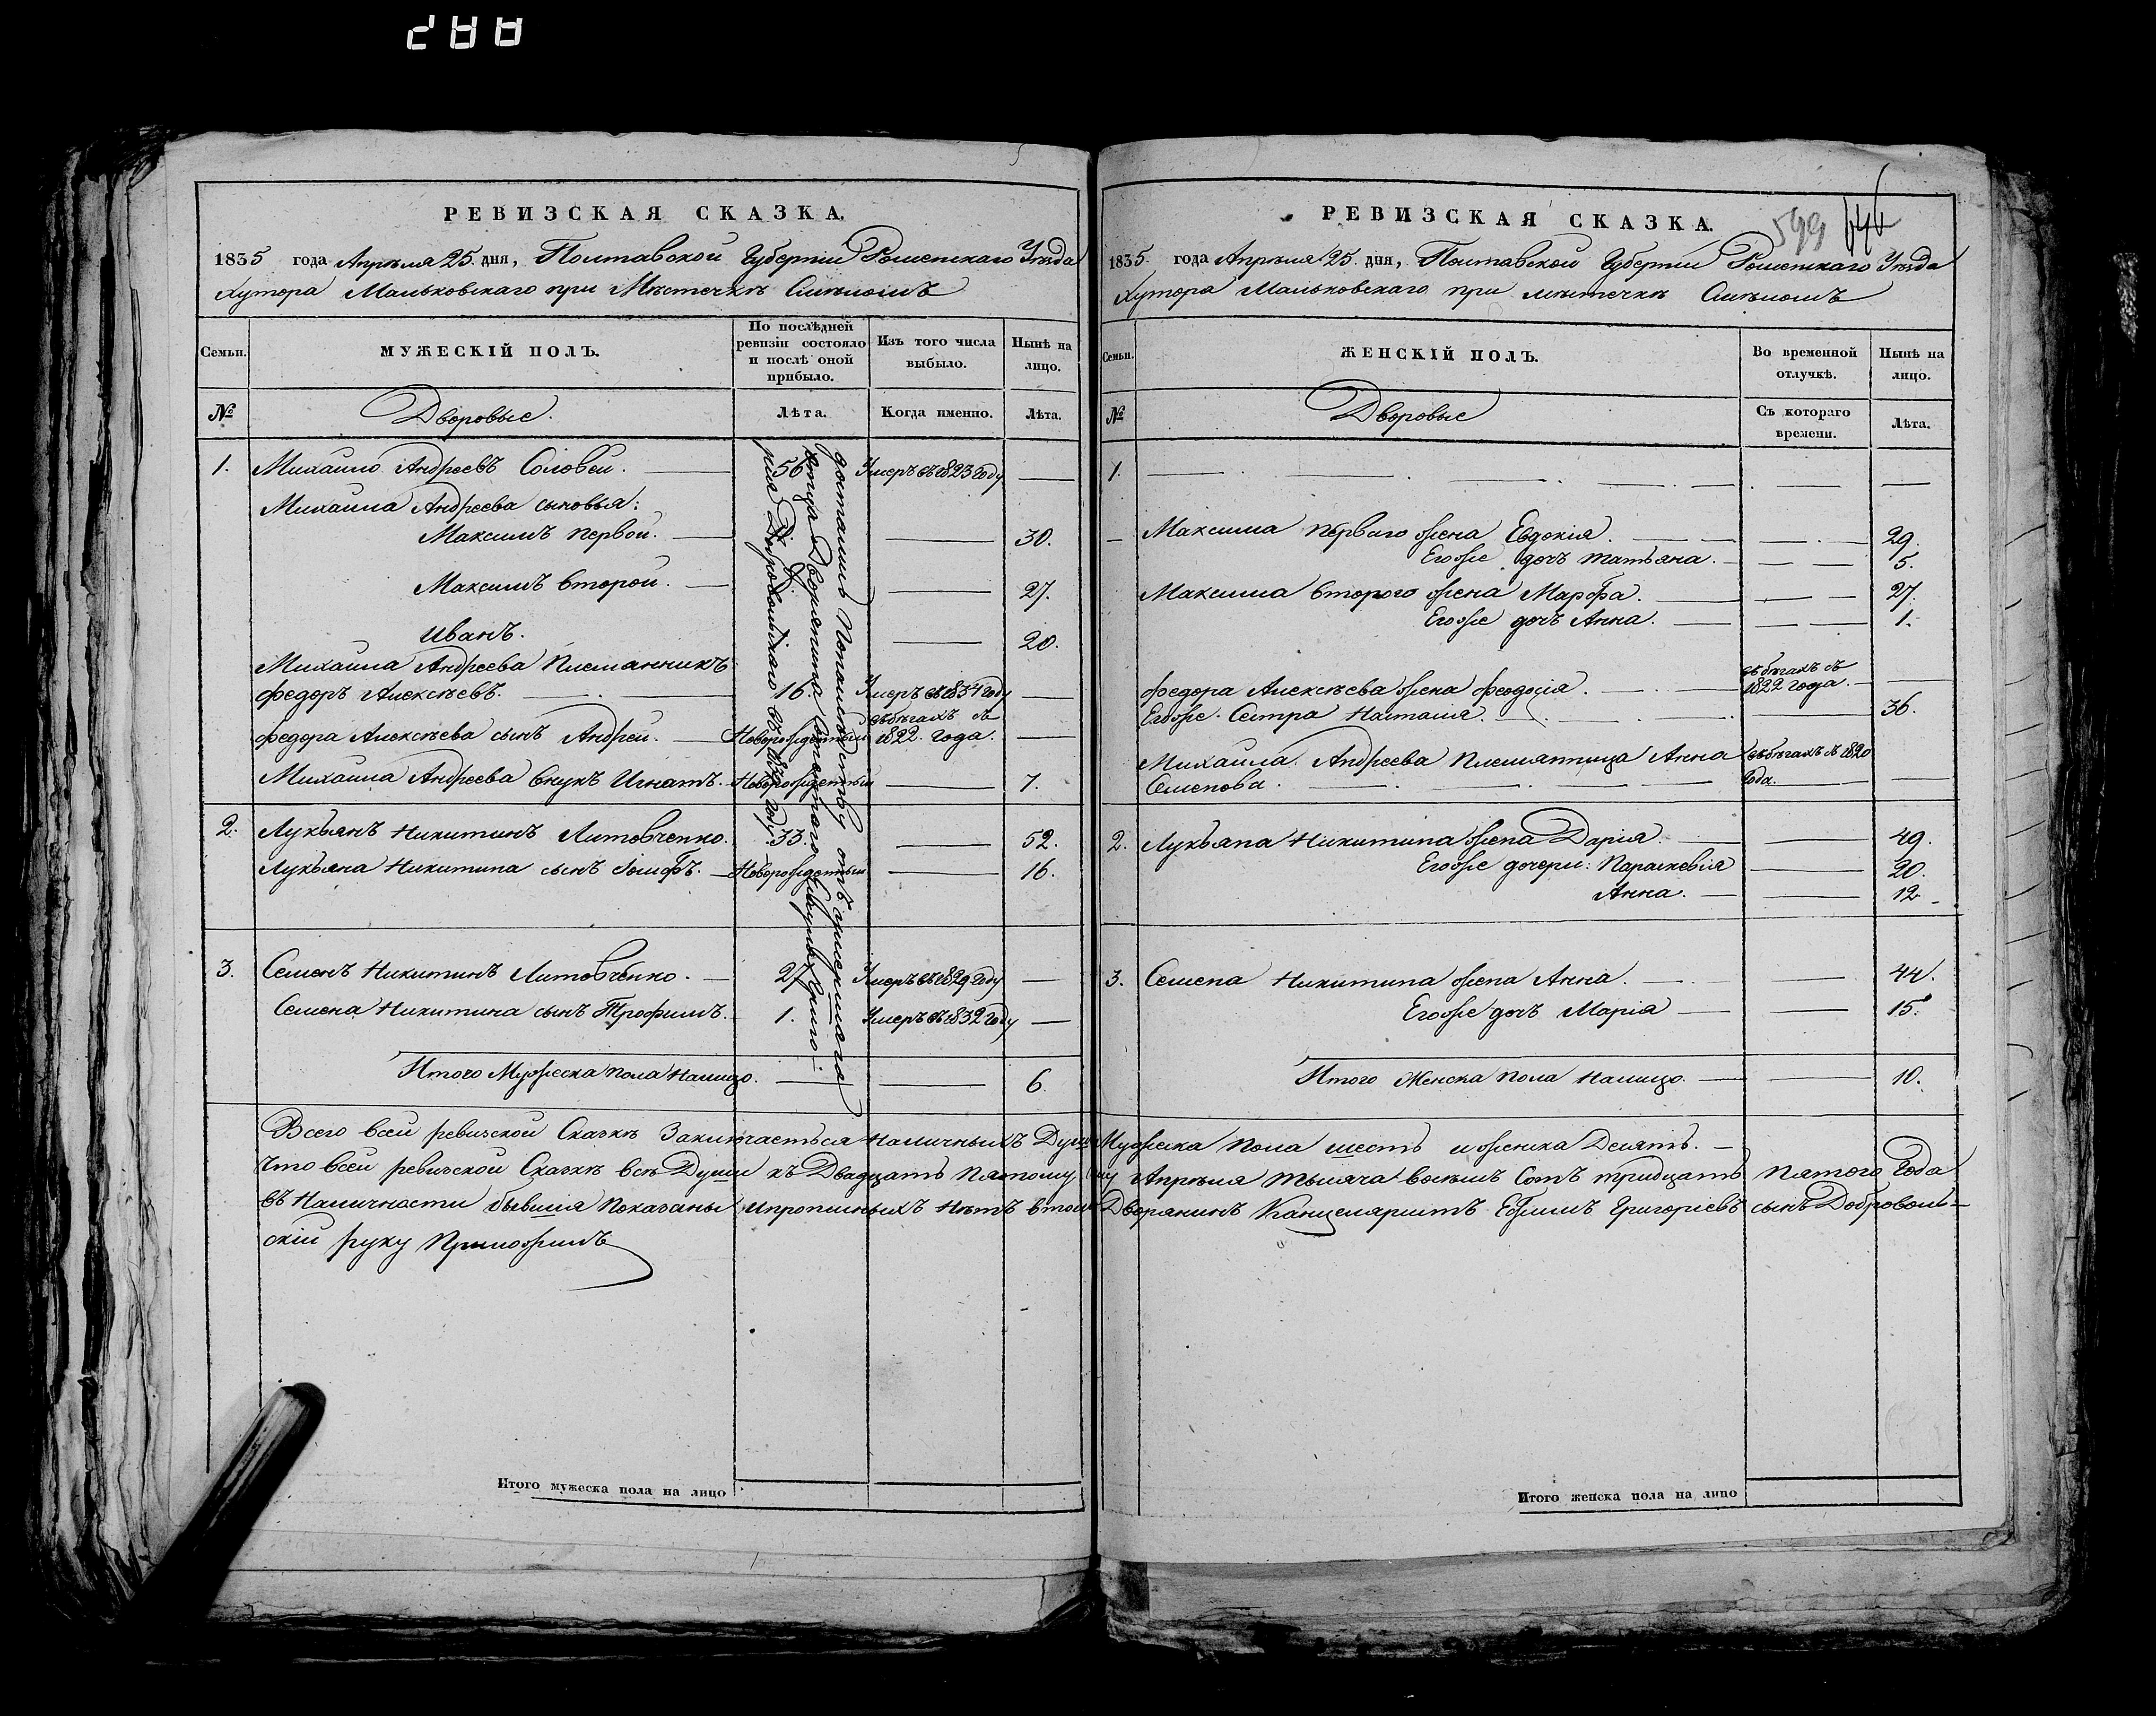 288
РЕВИЗСКАЯ СКАЗКА.
1835 года Апрѣля 25. дня, Полтавской Губерніи Роменскаго Уѣзда
Хутора Мальковскаго при Мѣстечкѣ Смѣломъ
Семьи.
МУЖЕСКІЙ ПОЛЪ.
По послѣдней ревизіи состояло и послѣ оной прибыло.
Изъ того числа выбыло.
Нынѣ на лицо.
№
Дворовые.
Лѣта.
Когда именно.
Лѣта.
1. Михаило Андреевъ Соловей. 56 Умеръ въ 1823 году
Михаила Андреева сыновья:
Максимъ первой. 30.
Максимъ второй. 27.
Иванъ. 20.
Михаила Андреева Племянникъ
Федоръ Алексѣевъ. 16. Умеръ въ 1834 году
Федора Алексѣева сынъ Андрей. Новорожденный въ бѣгахъ съ 1822. года.
Михаила Андреева внукъ Игнатъ. Новорожденный 7.
2. Лукьянъ Никитинъ Литовченко. 33. 52.
Лукьяна Никитина сынъ Іосифъ. Новорожденный 16.
3. Семенъ Никитинъ Литовченко. 27 Умеръ въ 1829 году
Семена Никитина сынъ Трофимъ. 1. Умеръ въ 1832 году
Итого Мужеска пола налицо. 6.
достались по наслѣдству отъ умершаго
отца Дворянина Григорія Добровольскаго
РЕВИЗСКАЯ СКАЗКА.
599
1835. года Апрѣля 25. дня, Полтавской Губерніи Роменскаго Уѣзда
Хутора Мальковскаго при мѣстечкѣ Смѣломъ
Семьи.
ЖЕНСКІЙ ПОЛЪ.
Во временной отлучкѣ.
Нынѣ на лицо.
№
Дворовые
Съ котораго времени.
Лѣта.
1.
Максима перваго жена Евдокія. 29.
Егоже дочь Татьяна. 5.
Максима второго жена Марфа. 27.
Егоже дочь Анна. 1.
Федора Алексѣева жена Феодосія. въ бѣгахъ съ 1822 года.
Егоже Сестра Наталія. 36.
Михаила Андреева Племянница Анна въ бѣгахъ съ 1820
Семенова. года.
2. Лукьяна Никитина жена Дарія. 49.
Егоже дочери: Параскевія 20.
Анна. 12
3. Семена Никитина жена Анна. 44.
Егоже дочь Марія 15.
Итого Женска пола налицо. 10.
Всего всей ревизской Сказкѣ Заключаеться Наличныхъ Душъ Мужеска пола шесть и женска Десять.
Что всей ревизской Сказкѣ всѣ Души къ Двадцать Пятому Апрѣля тысяча восемь сотъ тридцать пятого Года
въ Наличности бывшія Показаны и прописныхъ нѣтъ в томъ Дворянинъ Канцеляристъ Ефимъ Григоріевъ сынъ Доброволь-
скій руку Приложилъ
Итого мужеска пола на лицо
Итого женска пола на лицо